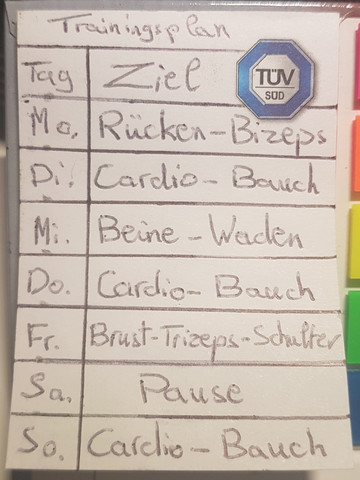 Trainingsplan
Tag Ziel
TÜV
SÜD
Mo. Rücken-Bizeps
Di. Cardio-Bauch
Mi. Beine-Waden
Do. Cardio-Bauch
Fr. Brust-Trizeps-Schulter
Sa. Pause
So. Cardio-Bauch